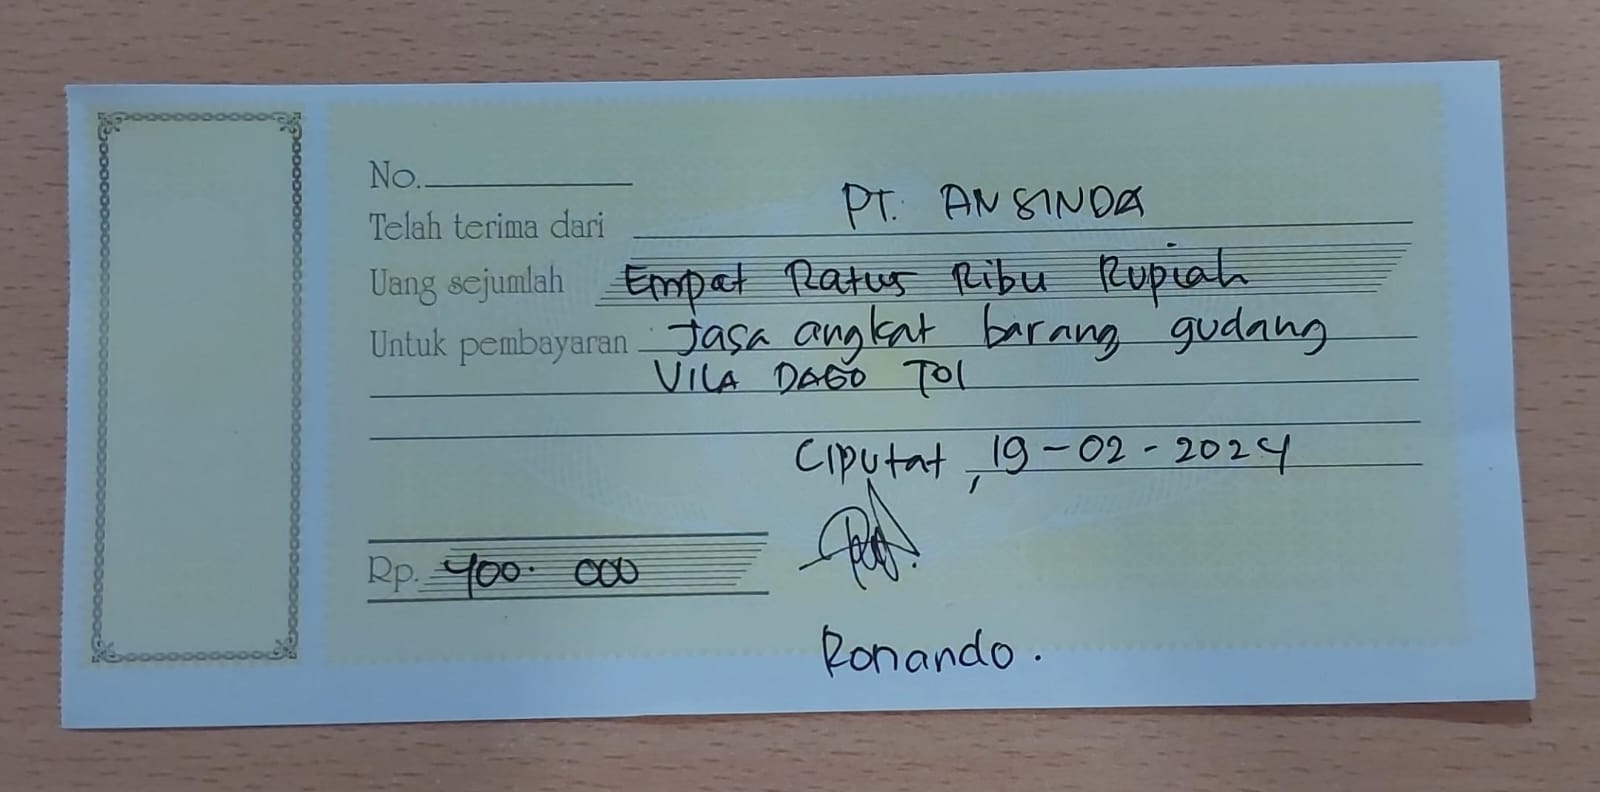 No.
Telah terima dari PT. ANSINDA
Uang sejumlah Empat Ratus Ribu Rupiah
Untuk pembayaran Jasa angkat barang gudang
VILA DAGO TOl
Ciputat, 19-02-2024
Rp. 400.000
Ronando.